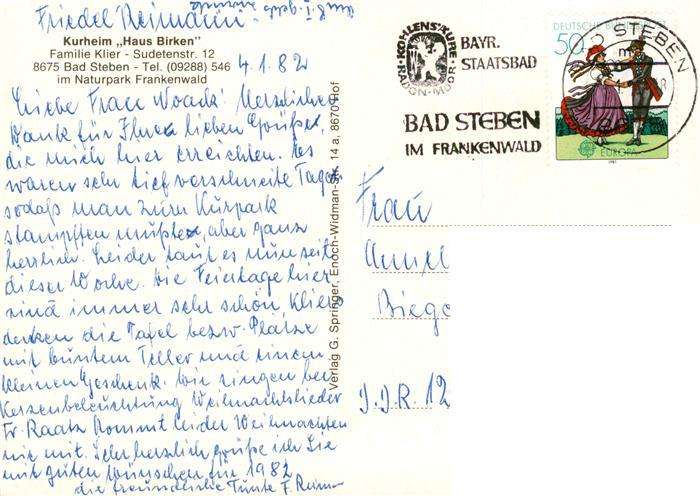 Friedel Reimann.
Kurheim „Haus Birken"
Familie Klier - Sudetenstr. 12
8675 Bad Steben - Tel. (09288) 546
im Naturpark Frankenwald
4.1.82
Liebe Frau Woack! Herzlichen
Dank für Ihre lieben Grüße,
die mich hier erreichten. Es
waren sehr tief verschneite Tage
sodaß man zum Kurpark
stampfen mußte, aber ganz
herrlich. Leider taut es nun seit
dieser Woche. Die Feiertage hier
sind immer sehr schön. Kliers
decken die Tafel bezw. Plätze
mit buntem Teller und einem
kleinen Geschenk. Wir singen bei
Kerzenbeleuchtung Weihnachtslieder
Fr. Raatz kommt leider Weihnachten
nie mit. Sehr herzlich grüße ich Sie
mit guten Wünschen für 1982
die freundliche Tante F. Reiman
Verlag G. Springer, Enoch-Widman-Str. 14 a, 8670 Hof
KOHLENS. KURE
RADON-MOOR
BAYR.
STAATSBAD
BAD STEBEN
IM FRANKENWALD
DEUTSCHE BUNDESPOST
50
EUROPA
STEBEN
Frau
D.D.R. 12